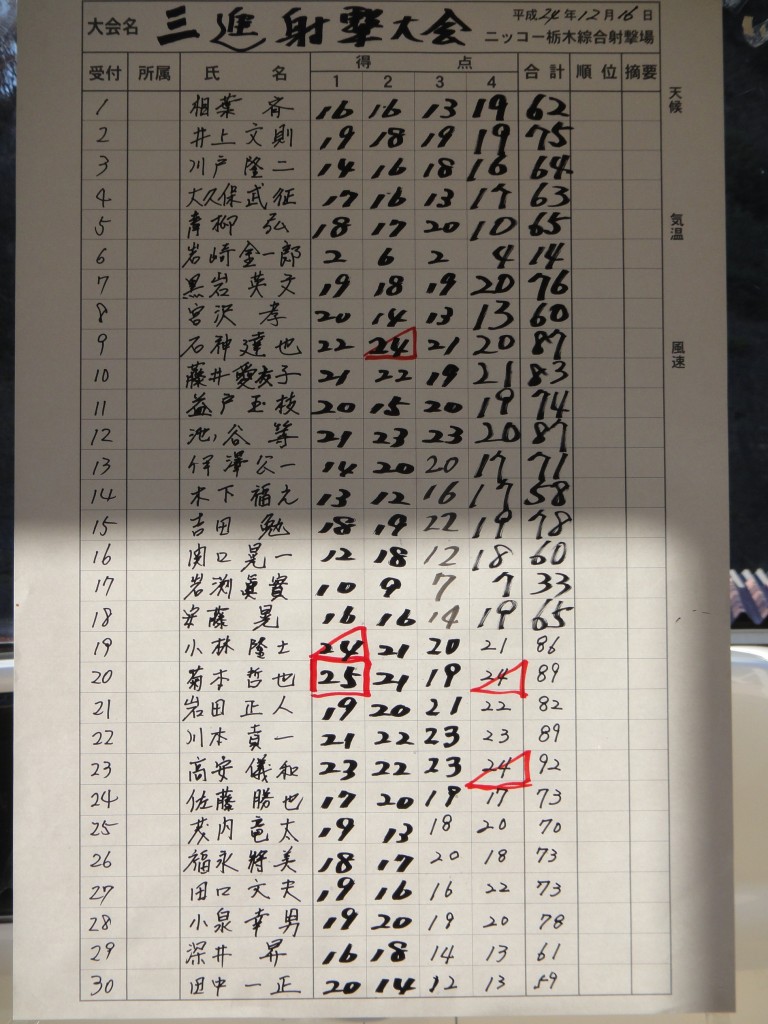 大会名 三進射撃大会 平成24年12月16日
ニッコー栃木綜合射撃場
受付 所属 氏名 得点 合計 順位 摘要
1 2 3 4
天候
気温
風速
1 相葉 斉 16 16 13 19 62
2 井上文則 19 18 19 19 75
3 川戸隆二 14 16 18 16 64
4 大久保武征 17 16 13 17 63
5 青柳 弘 18 17 20 10 65
6 岩崎金一郎 2 6 2 4 14
7 黒岩英文 19 18 19 20 76
8 宮沢 孝 20 14 13 13 60
9 石神達也 22 24 21 20 87
10 藤井愛子 21 22 19 21 83
11 益戸玉枝 20 15 20 19 74
12 池谷 等 21 23 23 20 87
13 伊澤公一 14 20 20 17 71
14 木下福 13 12 16 17 58
15 吉田 勉 18 19 22 19 78
16 関口晃一 12 18 12 18 60
17 岩渕眞實 10 9 7 7 33
18 安藤 晃 16 16 14 19 65
19 小林隆士 24 21 20 21 86
20 菊本哲也 25 21 19 24 89
21 岩田正人 19 20 21 22 82
22 川本貢一 21 22 23 23 89
23 高安儀和 23 22 23 24 92
24 佐藤勝也 17 20 19 17 73
25 茂内竜太 19 13 18 20 70
26 福永將美 18 17 20 18 73
27 田口文夫 19 16 16 22 73
28 小泉幸男 19 20 19 20 78
29 深井 昇 16 18 14 13 61
30 田中一正 20 14 12 13 59